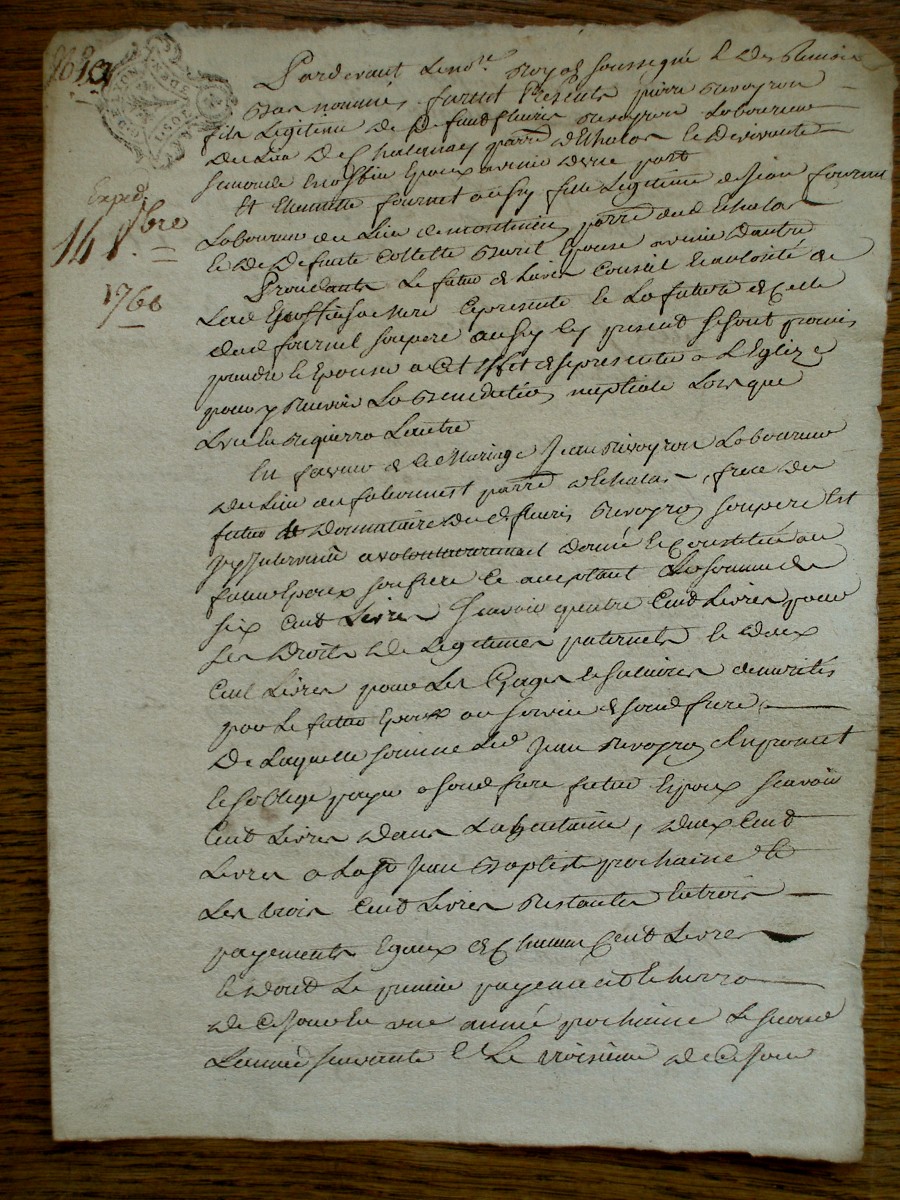 Expéd.
14 8bre
1760
Pardevant le no.re Royal soussigné & des temoins
bas nommés furent presents pierre Revoyron
fils legitime de defunt fleuris Revoyron laboureur
du lieu de parr.e d'Echalas & de vivante
epoux avenir d'une part
Et fournel aussy fille legitime de Jean fournel
laboureur du lieu de parr.e dud Echalas
& de defunte Collette epouse avenir d'autre
Procedants le futur de l'avis conseil & autorité de
sa mere cy presente & la future de celle
dud fournel son pere aussy icy present se sont promis
prendre & epouser a cet effet se presenter a l'Eglize
pour y recevoir la benediction nuptiale lorsque
l'un en requierra l'autre
En faveur de ce Mariage Jean Revoyron laboureur
du lieu de parr.e d'Echalas, frere du
futur & donnataire de fleuris Revoyron son pere est
icy intervenu a volontairement donné & constitué au
futur epoux son frere & acceptant la somme de
six cent livres scavoir quatre cent livres pour
ses droits de legitimes paternels & deux
cent livres pour les gages & salaires demerités
par le futur epoux au service de sond frere
De laquelle somme led Jean Revoyron promet
& s'oblige payer a sond frere futur epoux scavoir
cent livres dans la huitaine, deux cent
livres a la St Jean Baptiste prochaine &
les trois cent livres restantes en trois
payements egaux de chacun cent livres
& dont le premier payement echerra
de ce jour en une année prochaine le second
l'année suivante & le troisieme de ce jour